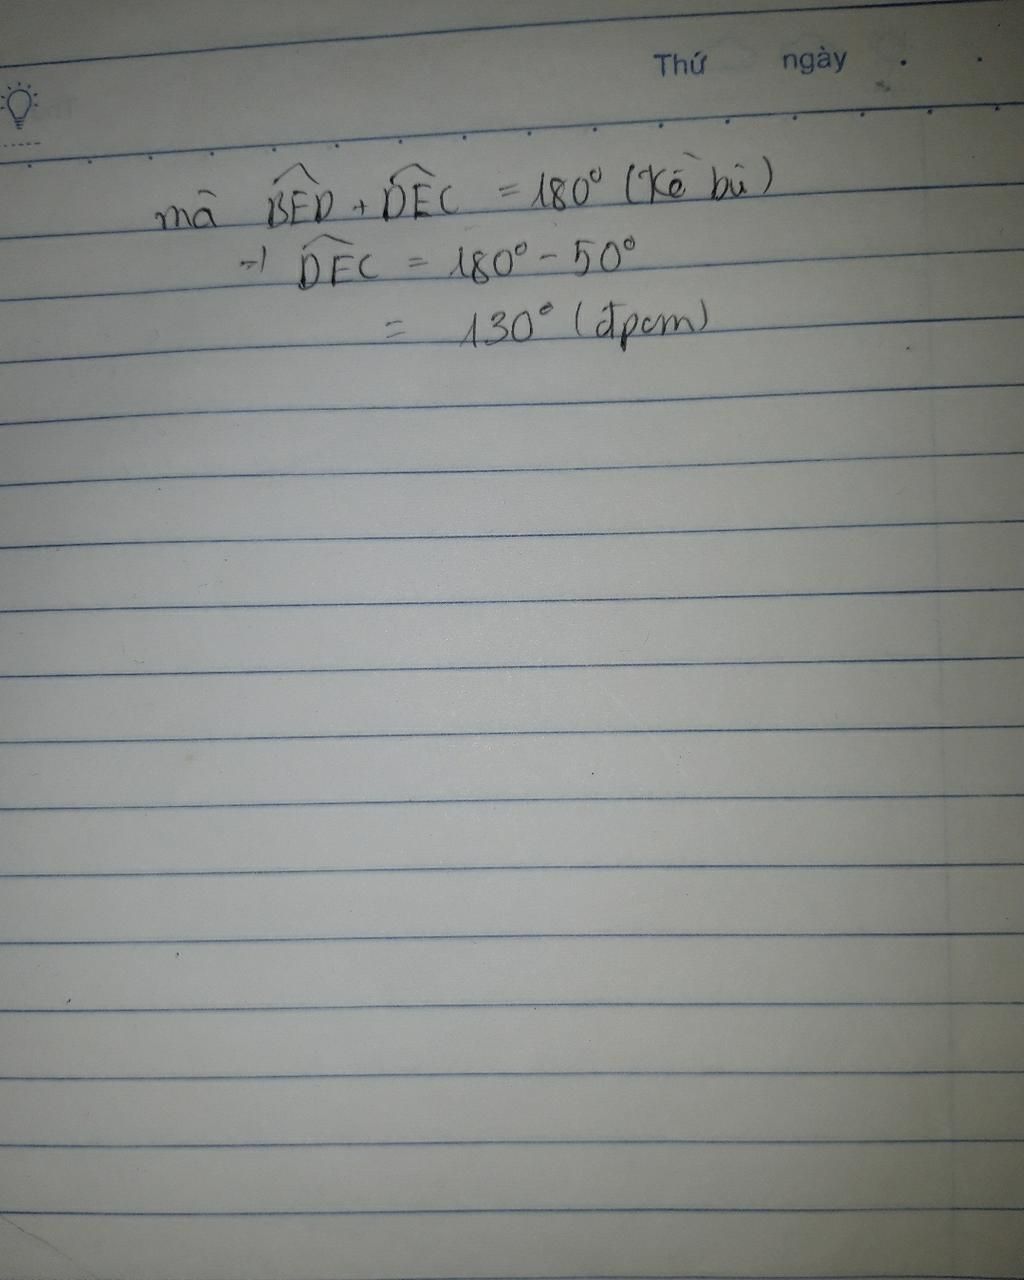 Thứ ngày
mà BED + DEC = 180° (Kề bù)
⇒ DEC = 180° - 50°
= 130° (đpcm)